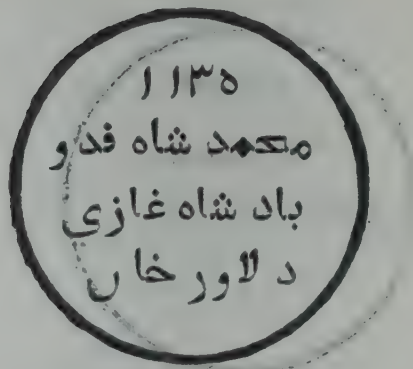 ١١٣٥
محمد شاه فذو
باد شاه غازي
د لاور خان